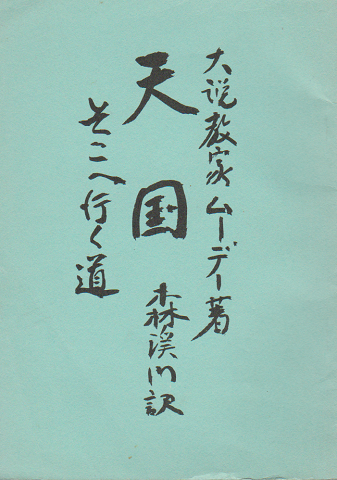 大説教家ムーデー著
天国
そこへ行く道
森溪川訳